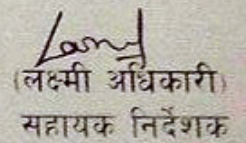 (लक्ष्मी अधिकारी)
सहायक निर्देशक